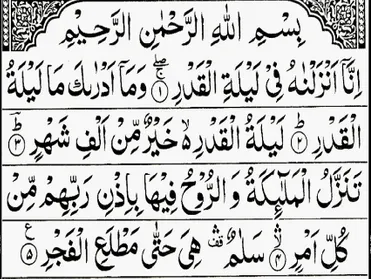 بِسْمِ اللهِ الرَّحْمٰنِ الرَّحِيْمِ
اِنَّاۤ اَنْزَلْنٰهُ فِيْ لَيْلَةِ الْقَدْرِ ۚۖ ﴿۱﴾ وَمَاۤ اَدْرٰىكَ مَا لَيْلَةُ
الْقَدْرِ ؕ ﴿۲﴾ لَيْلَةُ الْقَدْرِ ۙ۬ خَيْرٌ مِّنْ اَلْفِ شَهْرٍ ؕ ﴿۳﴾
تَنَزَّلُ الْمَلٰٓئِكَةُ وَ الرُّوْحُ فِيْهَا بِاِذْنِ رَبِّهِمْ مِّنْ
كُلِّ اَمْرٍ ۛ ﴿۴﴾ سَلٰمٌ ۛ قف هِيَ حَتّٰى مَطْلَعِ الْفَجْرِ ﴿۵﴾ ع